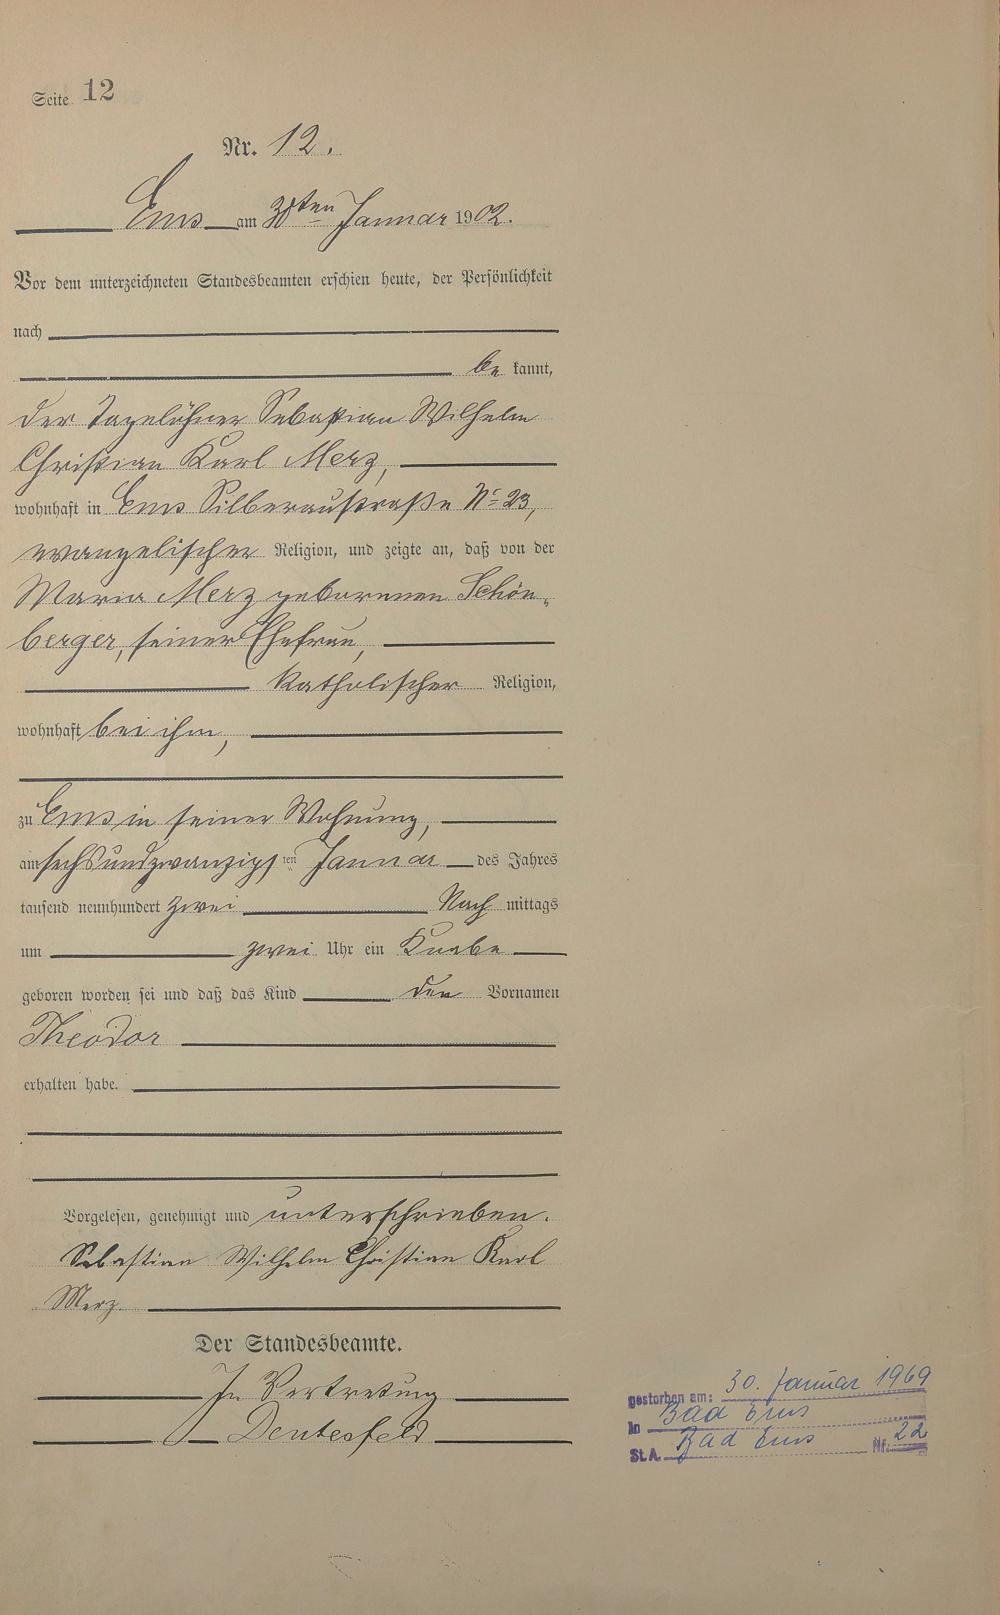 Seite 12
Nr. 12.
Ems am 30ten Januar 1902.
Vor dem unterzeichneten Standesbeamten erschien heute, der Persönlichkeit
nach
be kannt,
der Tagelöhner Sebastian Wilhelm
Christian Karl Merz,
wohnhaft in Ems Silberaustraße No 23,
evangelischer Religion, und zeigte an, daß von der
Maria Merz geborenen Schön„
berger, seiner Ehefrau,
katholischer Religion,
wohnhaft bei ihm,
zu Ems in seiner Wohnung,
am sechsundzwanzigsten Januar des Jahres
tausend neunhundert zwei Nach mittags
um zwei Uhr ein Knabe
geboren worden sei und daß das Kind den Vornamen
Theodor
erhalten habe.
Vorgelesen, genehmigt und unterschrieben.
Sebastian Wilhelm Christian Karl
Merz.
Der Standesbeamte.
In Vertretung
gestorben am: 30. Januar 1969
in Bad Ems
St.A. Bad Ems Nr. 22